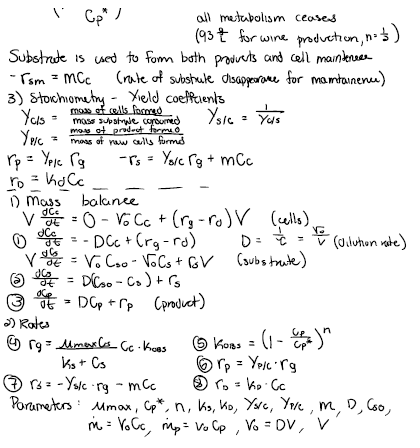 ( Cp* )
all metabolism ceases
(93 g/L for wine production, n = 1/2)
Substrate is used to form both products and cell maintenance
-rsm = mCc (rate of substrate disappearance for maintainence)
3) Stoichiometry - Yield coefficients
Yc/s = mass of cells formed / mass substrate consumed Ys/c = 1/Yc/s
Yp/c = mass of product formed / mass of new cells formed
rp = Yp/c rg -rs = Ys/c rg + mCc
rD = kd Cc
1) Mass balance
V dCc/dt = 0 - v0 Cc + (rg - rd) V (cells)
① dCc/dt = - DCc + (rg - rd) D = 1/τ = v0/V (dilution rate)
V dCs/dt = v0 Cso - v0 Cs + rs V (substrate)
② dCs/dt = D(Cso - Cs) + rs
③ dCp/dt = DCp + rp (product)
2) Rates
④ rg = μmax Cs / ks + Cs Cc · kobs ⑤ kobs = (1 - Cp/Cp*)^n
⑥ rp = Yp/c · rg
⑦ rs = -Ys/c · rg - mCc ⑧ rD = kD · Cc
Parameters: μmax, Cp*, n, ks, kD, Ys/c, Yp/c, m, D, Cso,
ṁ = v0 Cc, ṁp = v0 Cp, v0 = DV, V